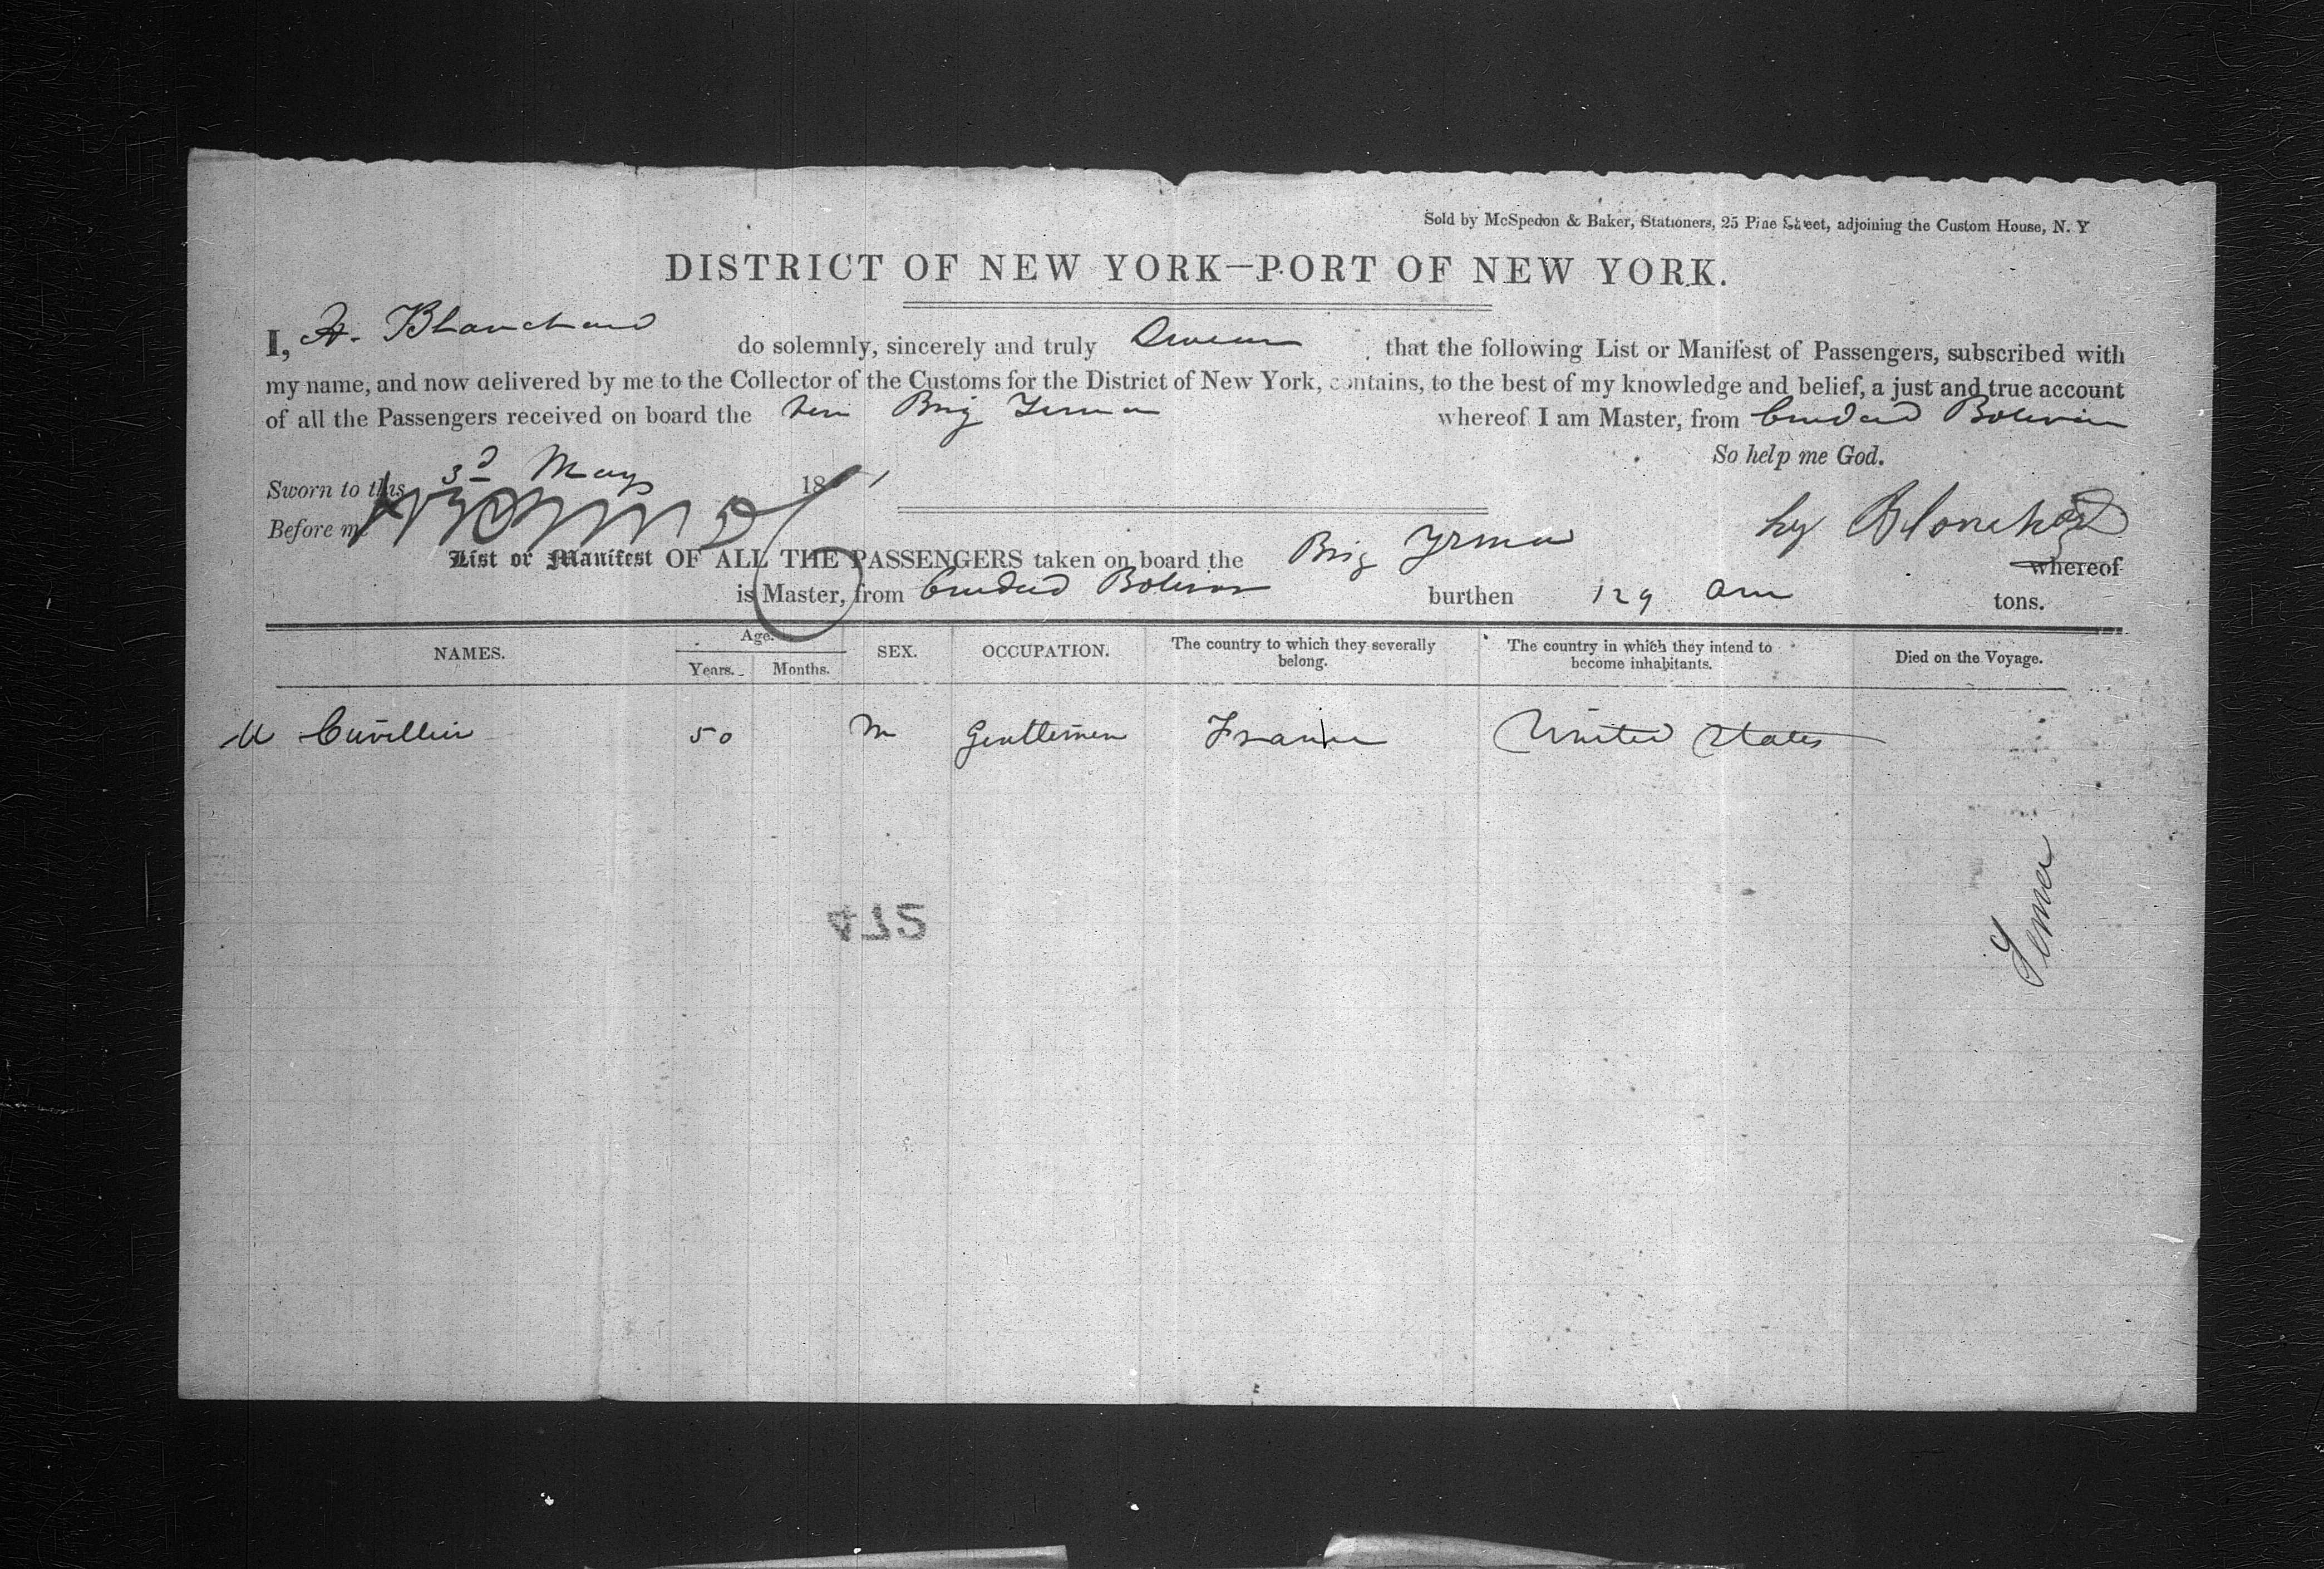 Sold by McSpedon & Baker, Stationers, 25 Pine Street, adjoining the Custom House, N. Y
DISTRICT OF NEW YORK—PORT OF NEW YORK.
I, H. Blanchard do solemnly, sincerely and truly Swear that the following List or Manifest of Passengers, subscribed with
my name, and now delivered by me to the Collector of the Customs for the District of New York, contains, to the best of my knowledge and belief, a just and true account
of all the Passengers received on board the Brig Yrma whereof I am Master, from Ciudad Bolivar
So help me God.
Sworn to this 3d May 18 1
Before me
hy Blanchard
List or Manifest OF ALL THE PASSENGERS taken on board the Brig Yrma whereof
is Master, from Ciudad Bolivar burthen 129 tons.
NAMES. Age. Years. Months. SEX. OCCUPATION. The country to which they severally belong. The country in which they intend to become inhabitants. Died on the Voyage.
M Cuvillier 50 M Gentlemen France United States
472
Yrma